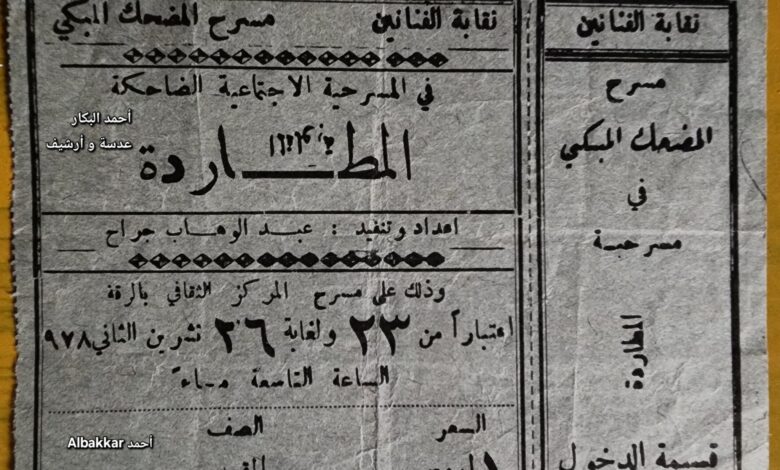 نقابة الفنانين مسرح المضحك المبكي
في المسرحية الاجتماعية الضاحكة
المطاردة
اعداد وتنفيد : عبد الوهاب جراح
وذلك على مسرح المركز الثقافي بالرقة
اعتباراً من ٢٣ ولغاية ٢٦ تشرين الثاني ٩٧٨
الساعة التاسعة مساءً
السعر الصف
نقابة الفنانين
مسرح
المضحك المبكي
في
مسرحية
المطاردة
قسيمة الدخول
أحمد البكار
عدسة و أرشيف
أحمد Albakkar